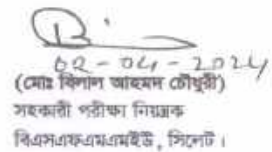 02-04-2024
(মোঃ বিলাল আহমদ চৌধুরী)
সহকারী পরীক্ষা নিয়ন্ত্রক
বিএসএফএমএমইউ, সিলেট।